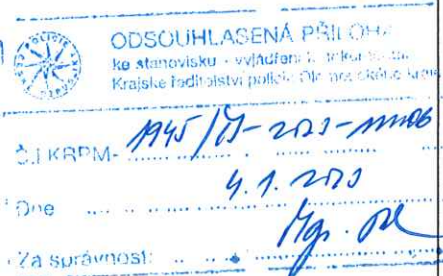 POLICIE
ODSOUHLASENÁ PŘÍLOHA
ke stanovisku - vyjádření k
Krajské ředitelství policie Olomouckého kraje
Č.J KRPM- 1945/
Dne 4. 1. 2023
Za správnost: Mgr.